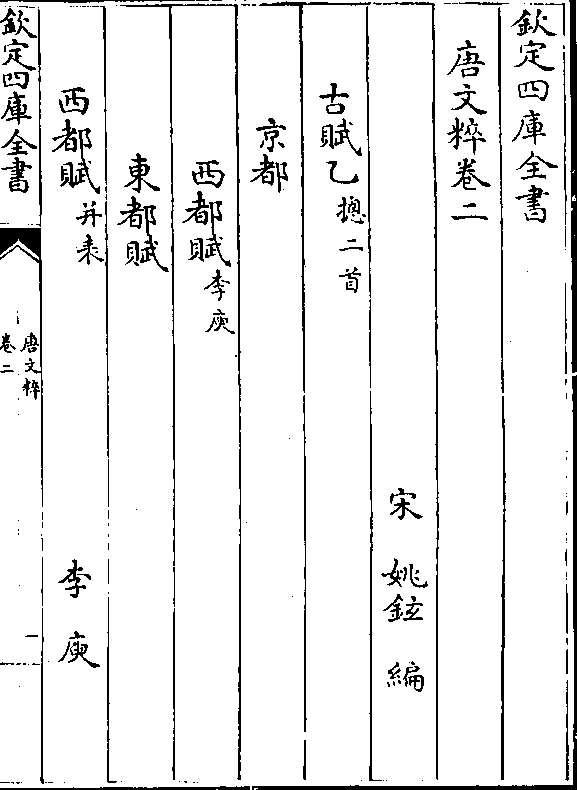 欽定四庫全書
唐文粹卷二
宋　姚鉉　編
古賦乙摠二首
京都
西都賦李庾
東都賦
西都賦并表　李庾
欽定四庫全書
唐文粹
卷二
一